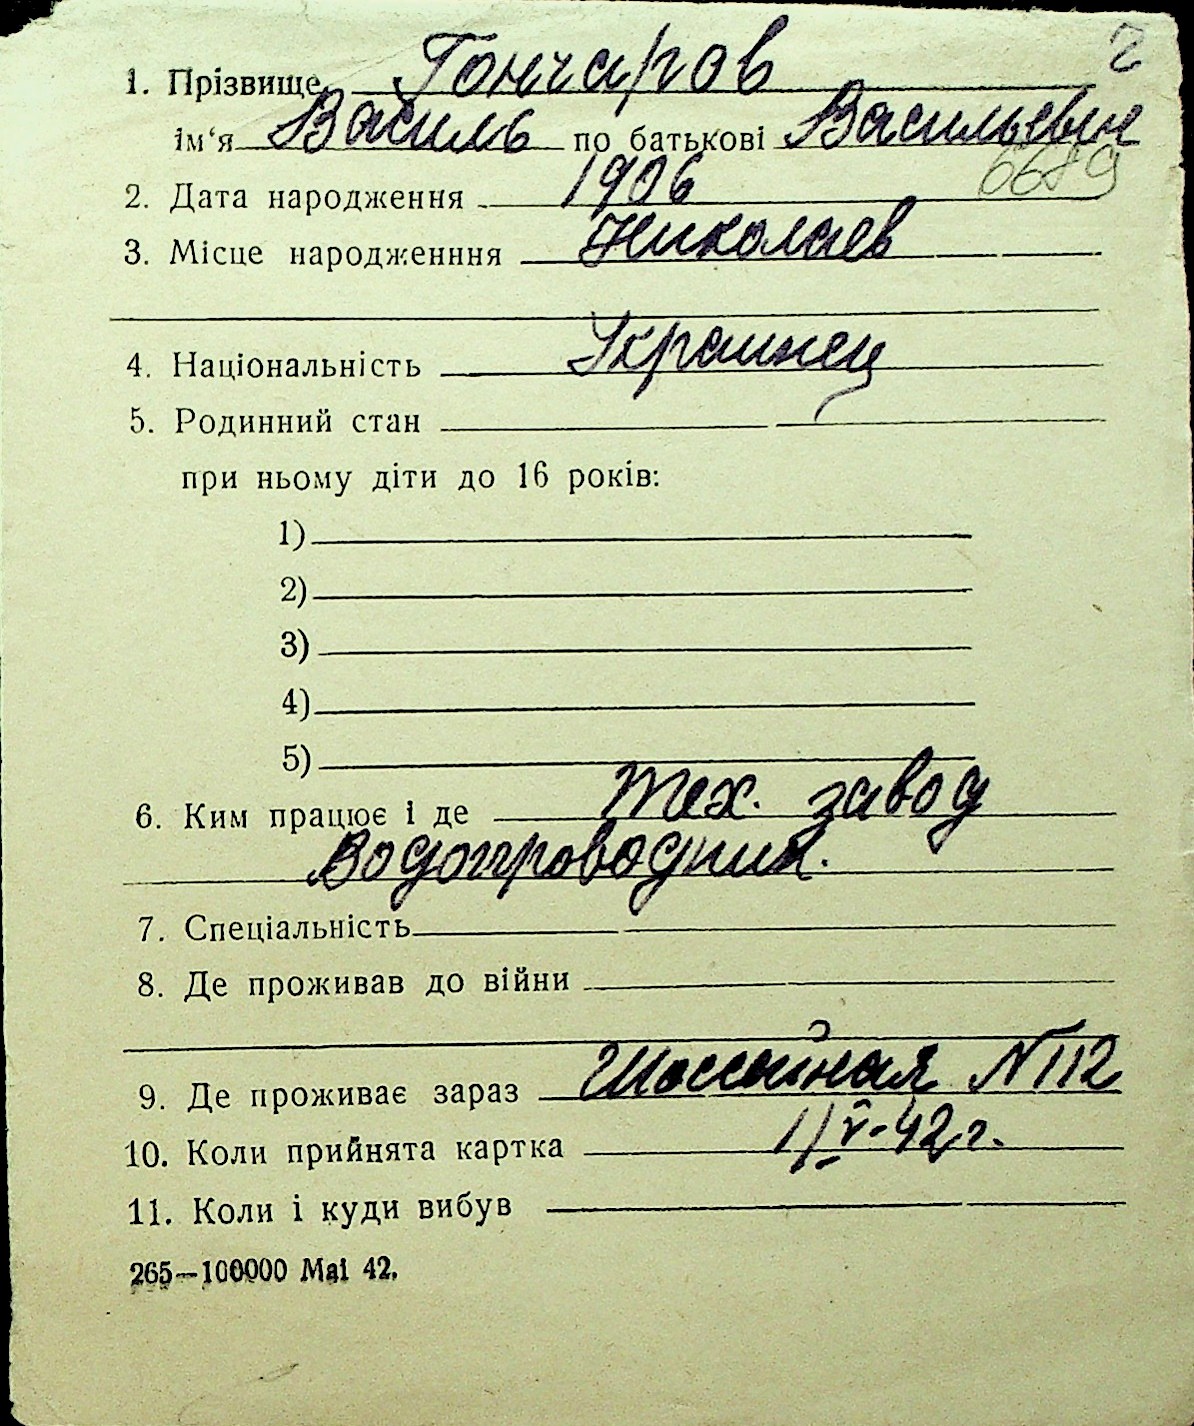 2
1. Прізвище Гончаров
ім‘я Василь по батькові Васильевич
6689
2. Дата народження 1906
3. Місце народженння Николаев
4. Національність Украинец
5. Родинний стан
при ньому діти до 16 років:
1)
2)
3)
4)
5)
6. Ким працює і де тех. завод
Водопроводник.
7. Спеціальність
8. Де проживав до війни
9. Де проживає зараз Шоссейная N 112
10. Коли прийнята картка 1/V-42 г.
11. Коли і куди вибув
265—100000 Mai 42.